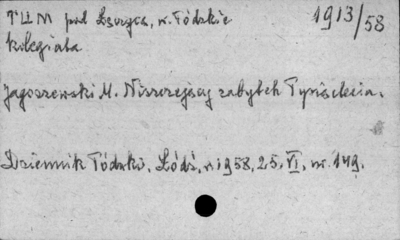 TUM pod Łęczycą, w. Łódzkie 1913/58
kolegiata
Jagoszewski M. Niszczejący zabytek Tysiąclecia.
Dziennik Łódzki, Łódź, r. 1958, 25. VI, nr. 149.